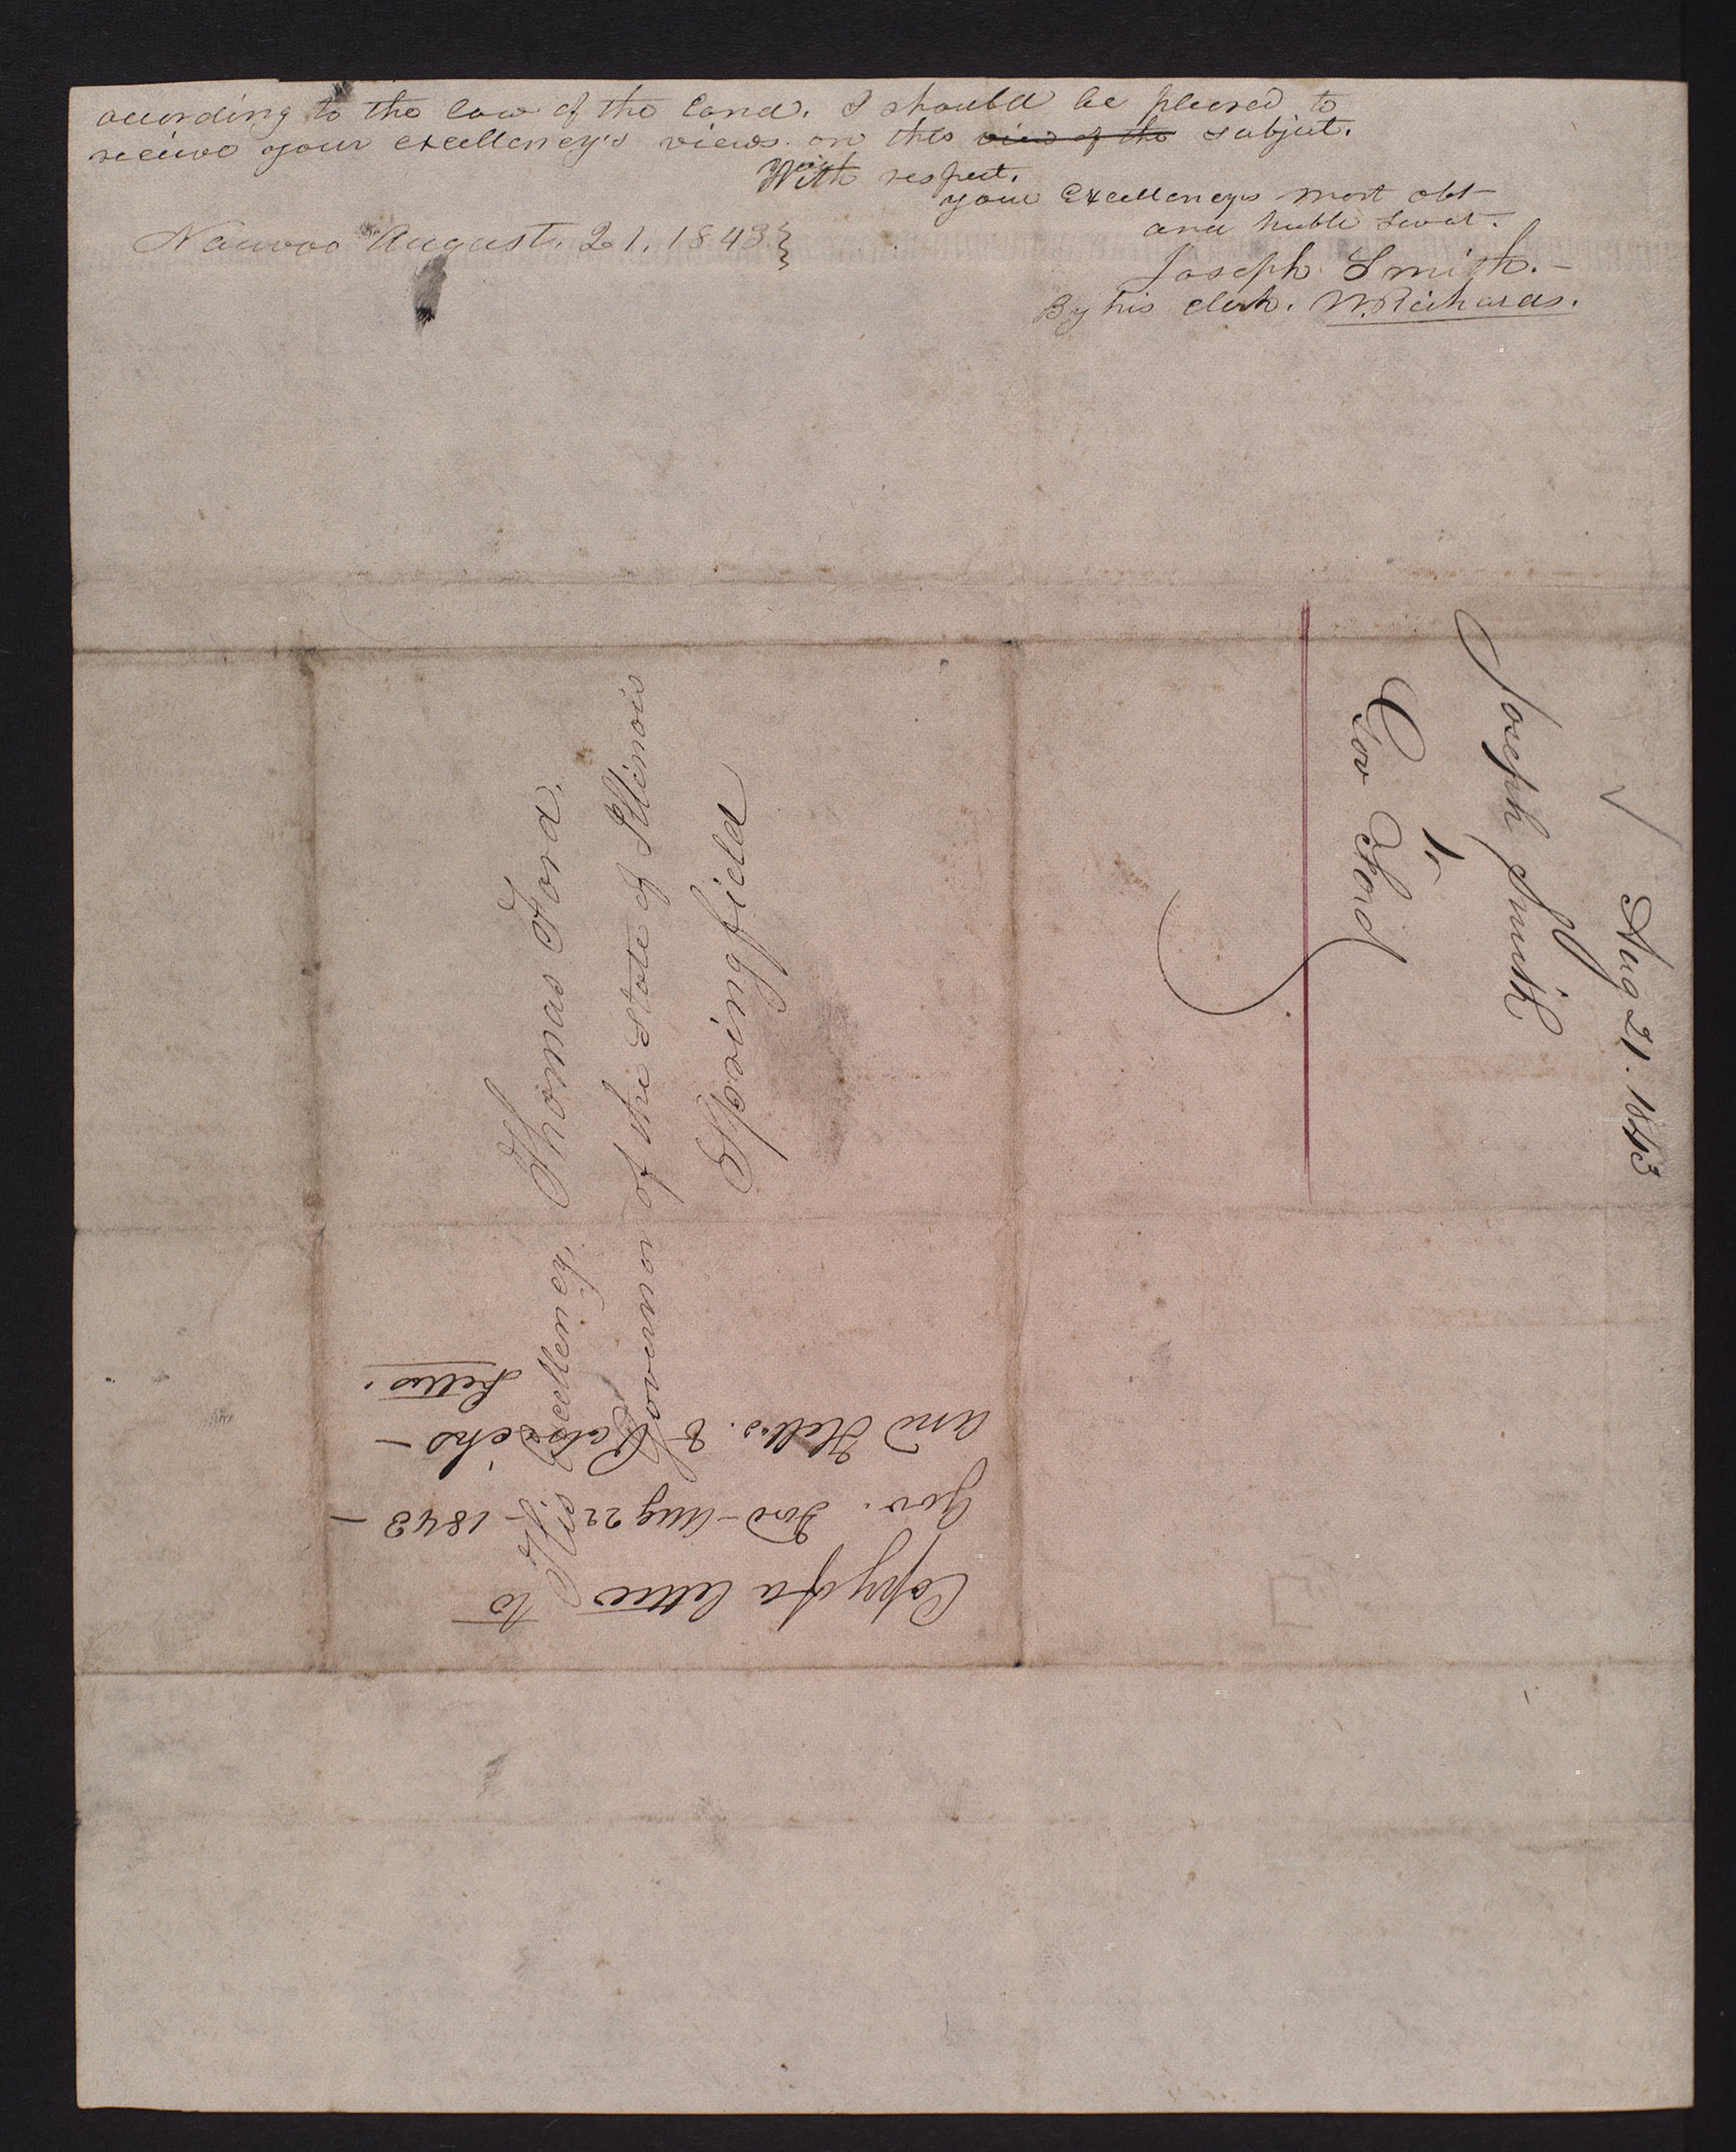 according to the law of the land. I should be pleased to
receive your excellency's views. on this view of the subject.
With respect.
your Excellencys most obt
and huble Servt.
Nauvoo August. 21. 1843
Joseph Smith.-
By his clerk. W. Richards.
His Excellency, Thomas Ford,
Governor of the State of Illinois
Springfield
Copy of a letter to
Gov. Ford - Aug 22 - 1843 -
and
Letters.
Aug 21. 1843
Joseph Smith
to
Gov Ford